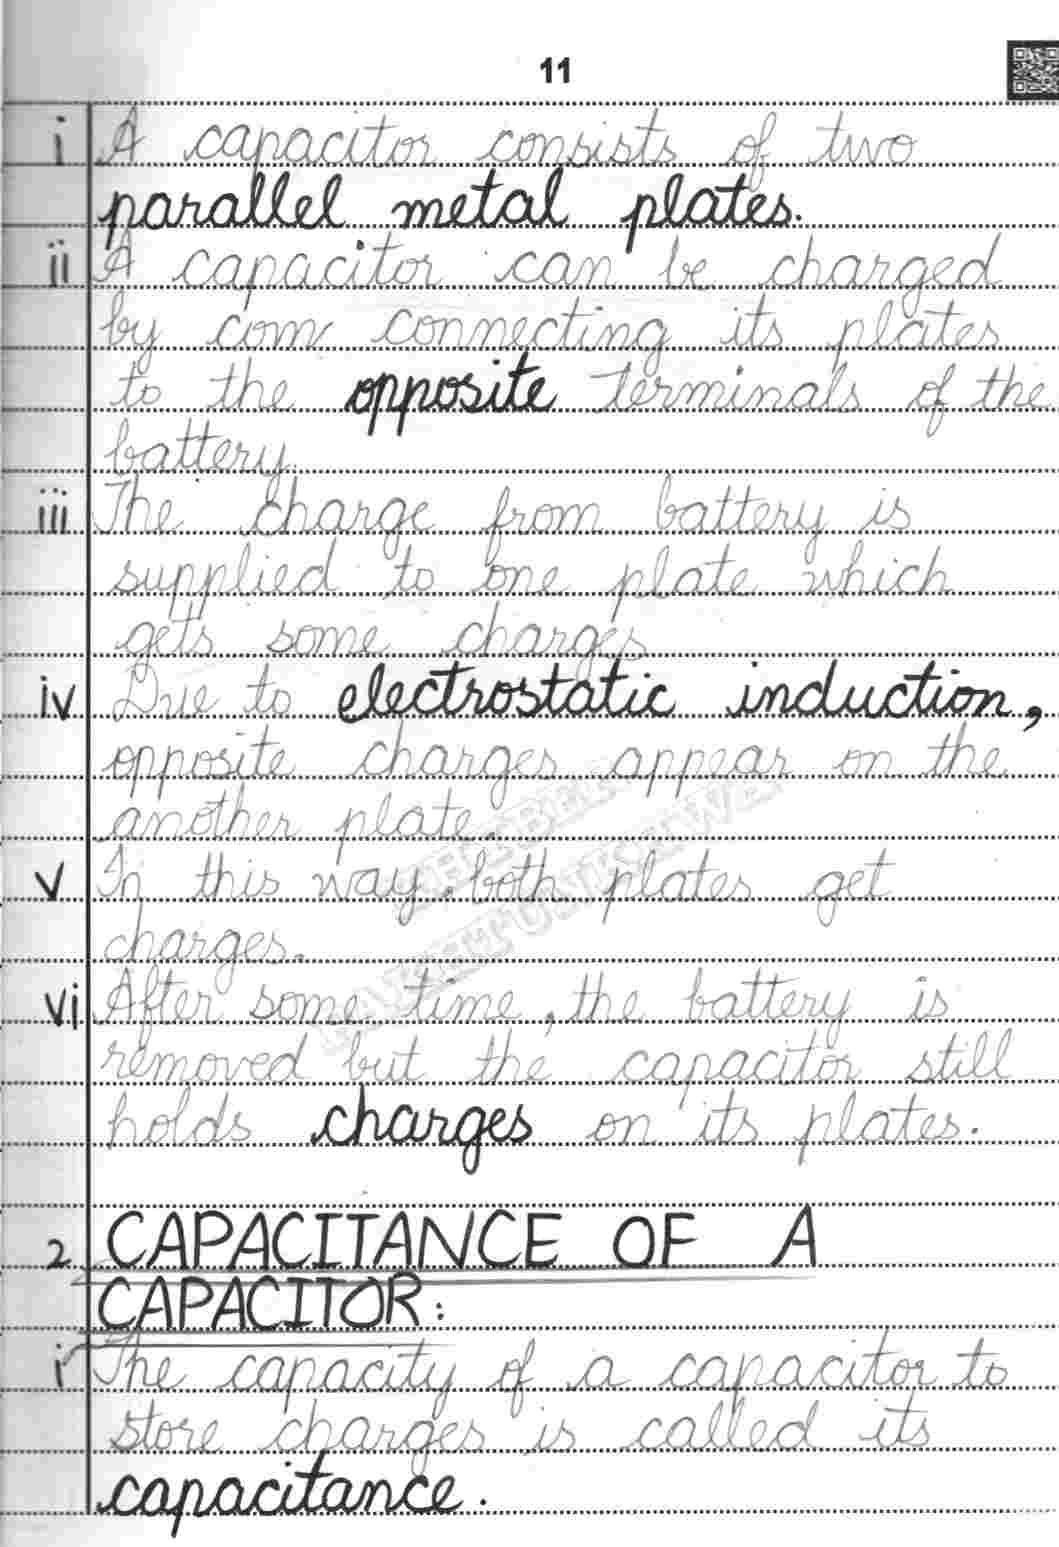 11
i A capacitor consists of two
parallel metal plates.
ii A capacitor can be charged
by com connecting its plates
to the opposite terminals of the
battery.
iii The charge from battery is
supplied to one plate which
gets some charges
iv Due to electrostatic induction,
opposite charges appear on the
another plate
v In this way, both plates get
charges.
vi After some time, the battery is
removed but the capacitor still
holds charges on its plates.
2 CAPACITANCE OF A
CAPACITOR:
i The capacity of a capacitor to
store charges is called its
capacitance.